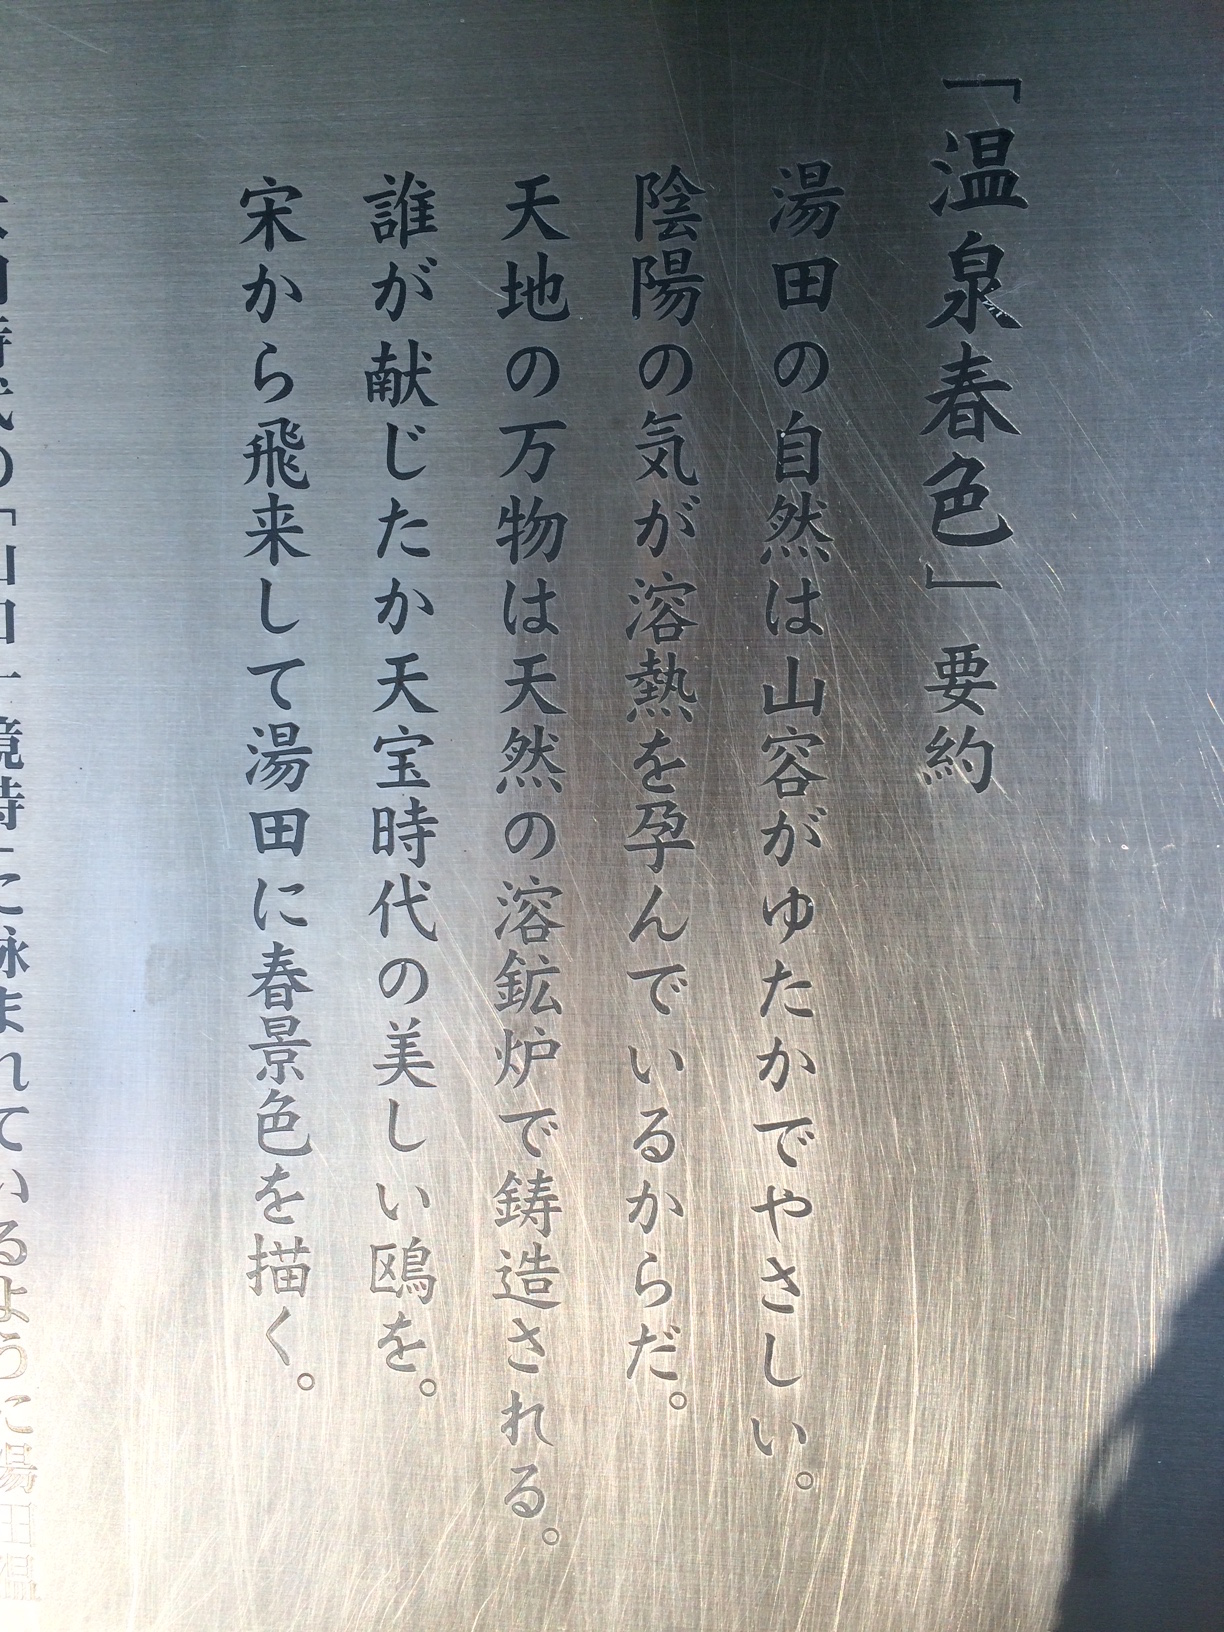 「温泉春色」要約
湯田の自然は山容がゆたかでやさしい。
陰陽の気が溶熱を孕んでいるからだ。
天地の万物は天然の溶鉱炉で鋳造される。
誰が献じたか天宝時代の美しい鴎を。
宋から飛来して湯田に春景色を描く。
時代の「山口十境詩」に詠まれているように湯田温